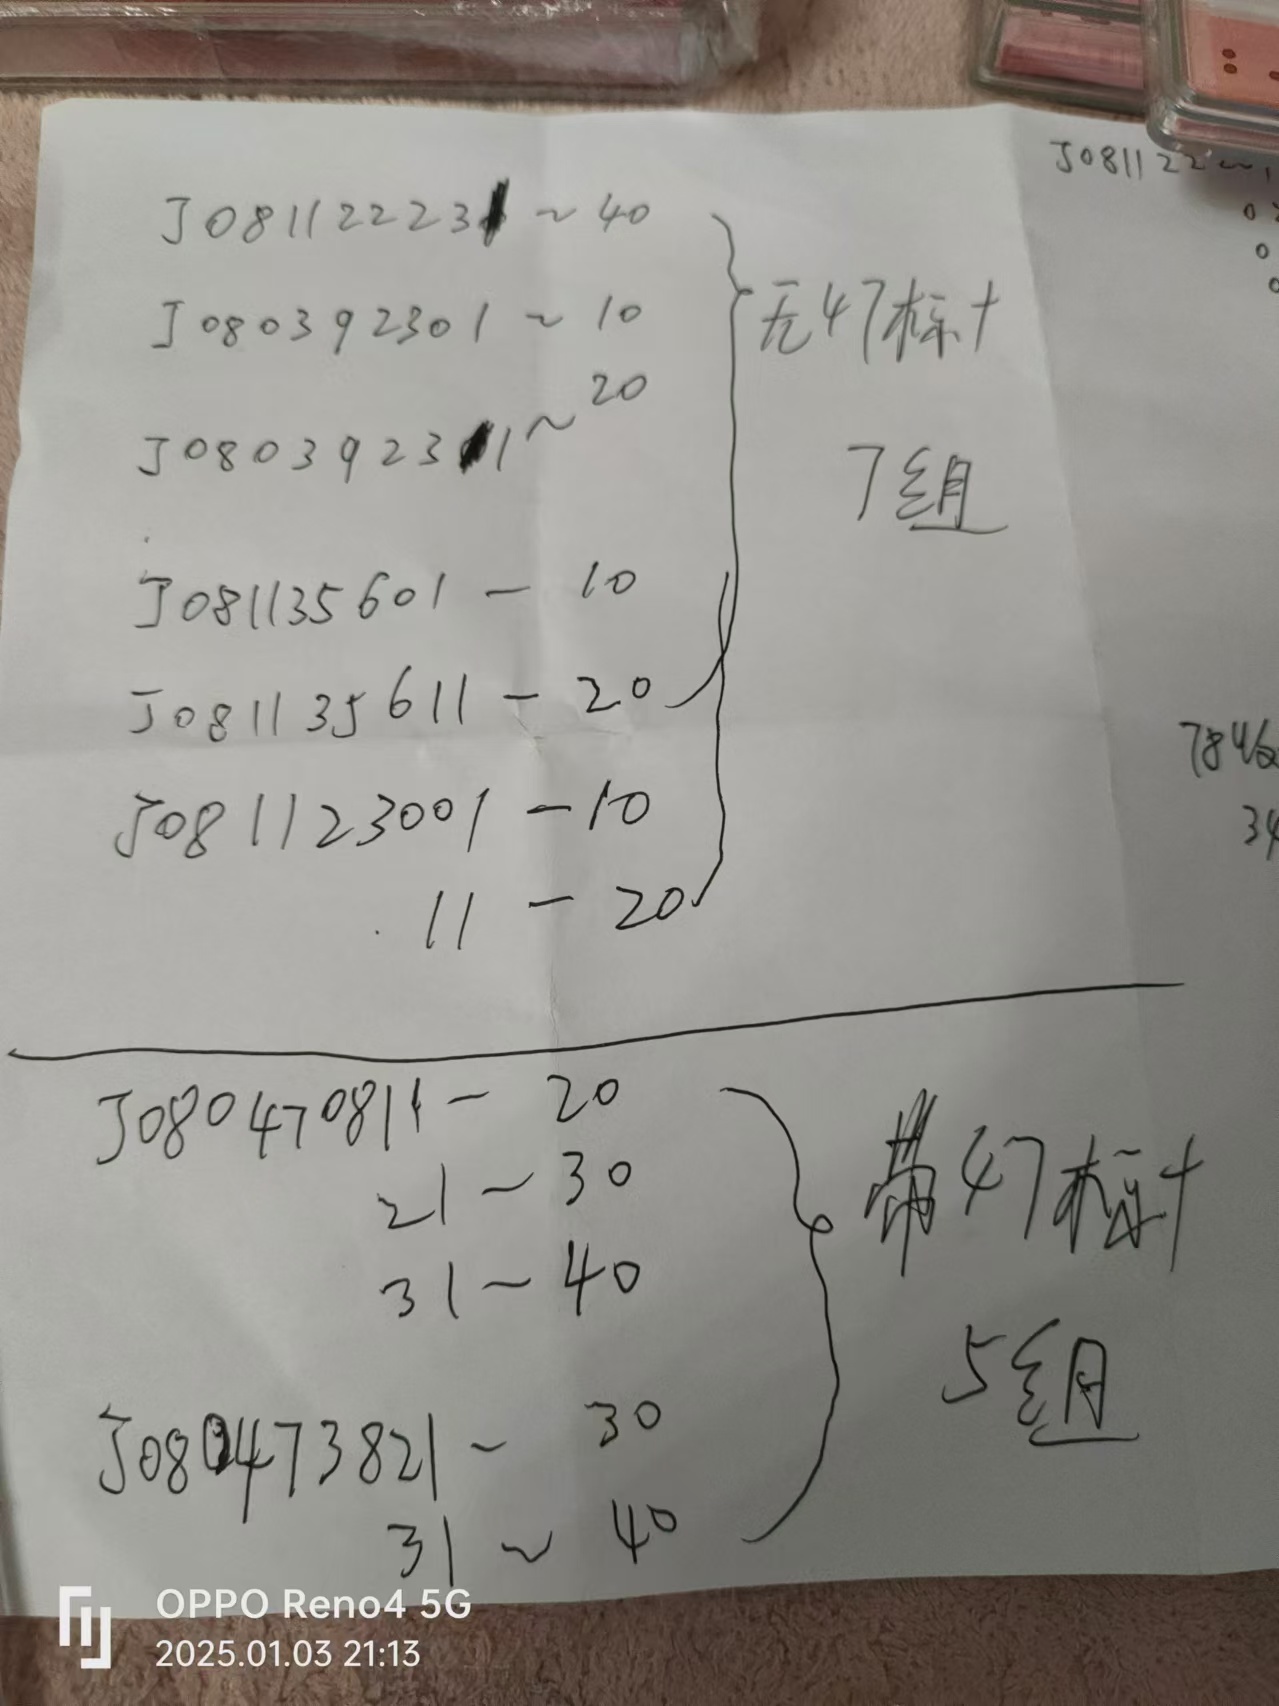 J081122231~40
J080392301~10
J080392311~20
无47标十
7组
J081135601-10
J081135611-20
J081123001-10
11-20
J080470811-20
21~30
31~40
带47标十
5组
J080473821~30
31~40
J081122~1
7846
34
OPPO Reno4 5G
2025.01.03 21:13